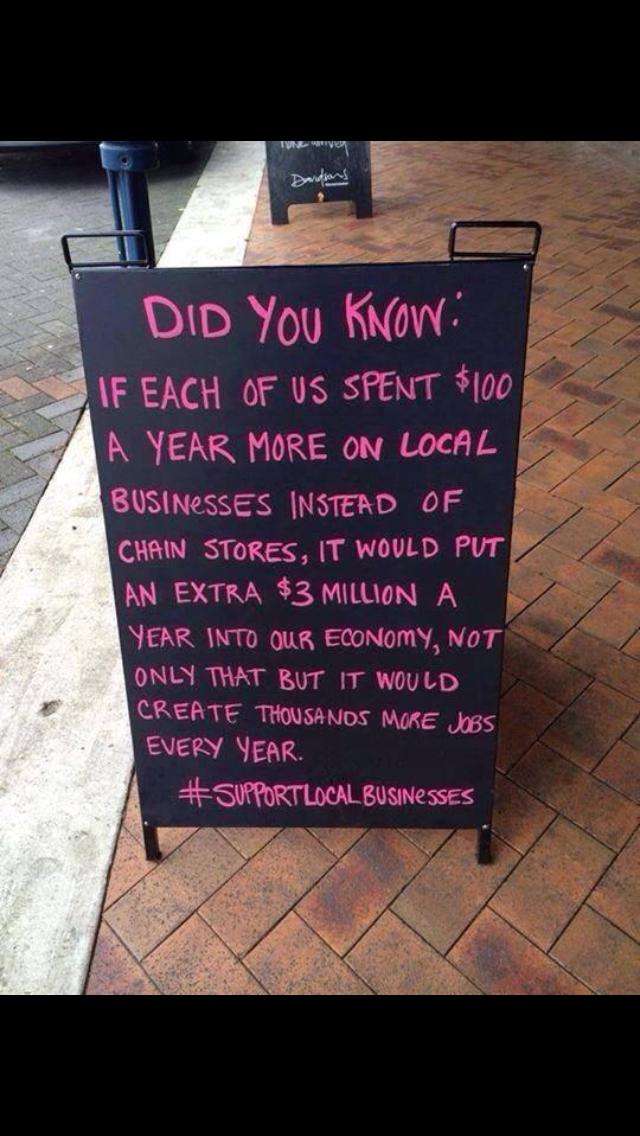 Davidsons
DID YOU KNOW:
IF EACH OF US SPENT $100
A YEAR MORE ON LOCAL
BUSINeSSES INSTEAD OF
CHAIN STORES, IT WOULD PUT
AN EXTRA $3 MILLION A
YEAR INTO OUR ECONOMY, NOT
ONLY THAT BUT IT WOULD
CREATE THOUSANDS MORE JOBS
EVERY YEAR.
#SUPPORTLOCALBUSINeSSES